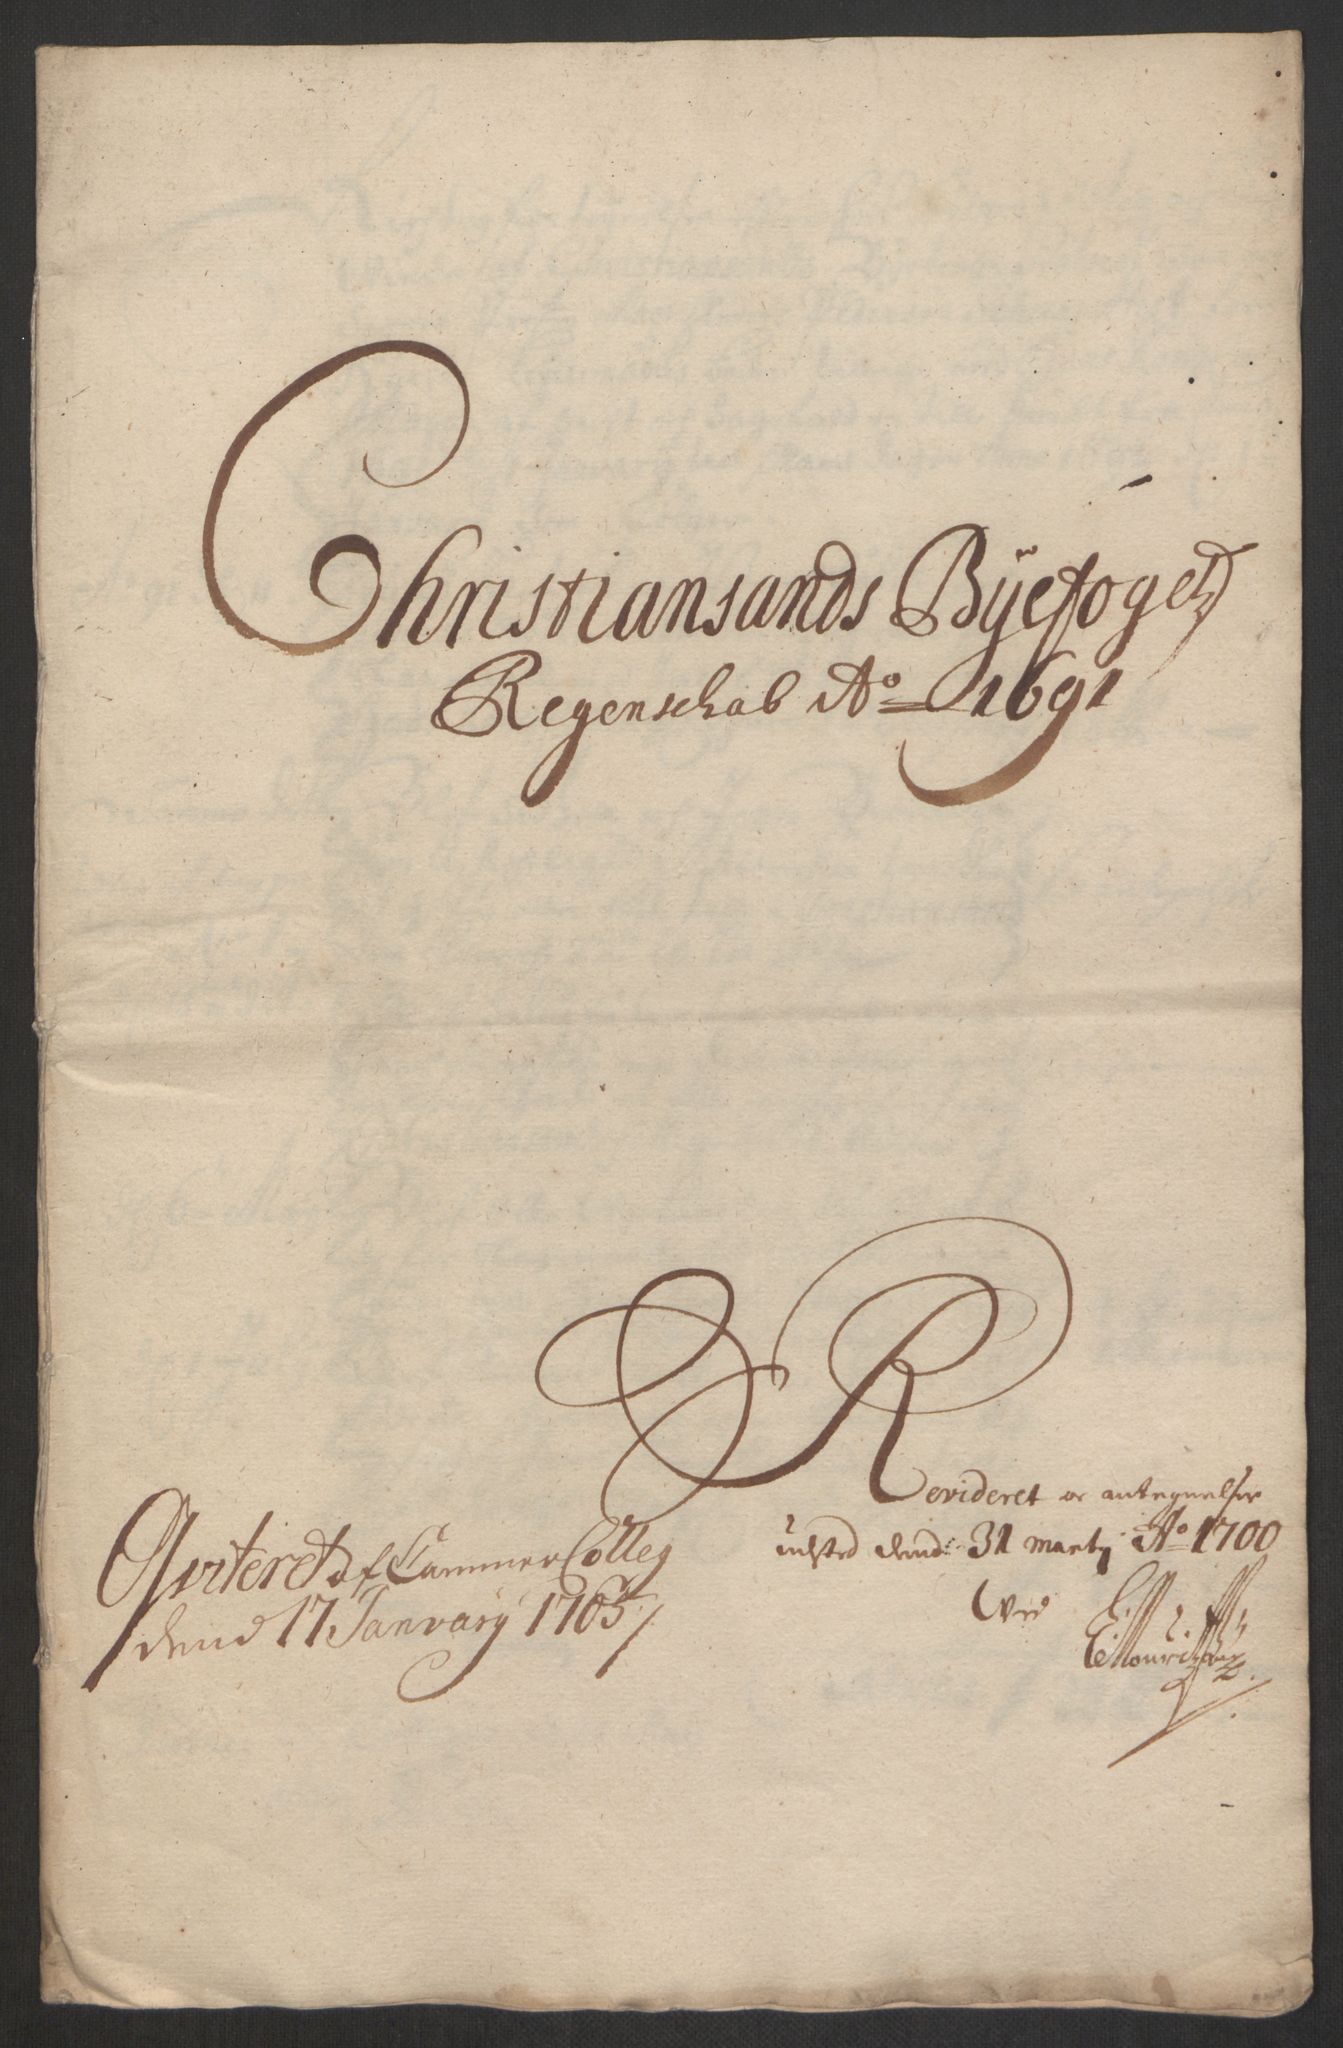 Christiansands Byefogetz
Regenschab Ao 1691
Revideret oc antegnelser
udsted dend: 31 Martij Ao 1700
Ved
Qviteret af Cammer Colleg
dend 17 January 1705